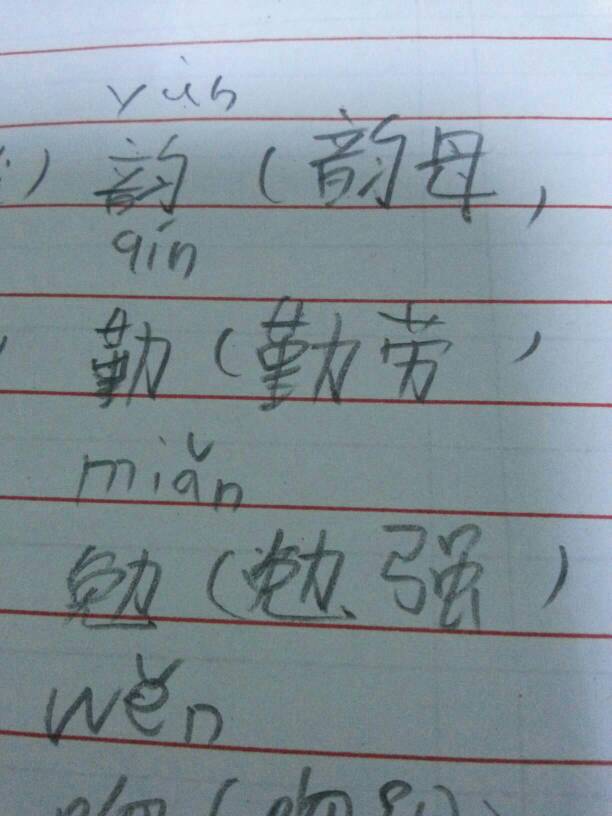 yùn
）韵（韵母，
qín
勤（勤劳，
miǎn
勉（勉强）
wěn
吻（吻别）、